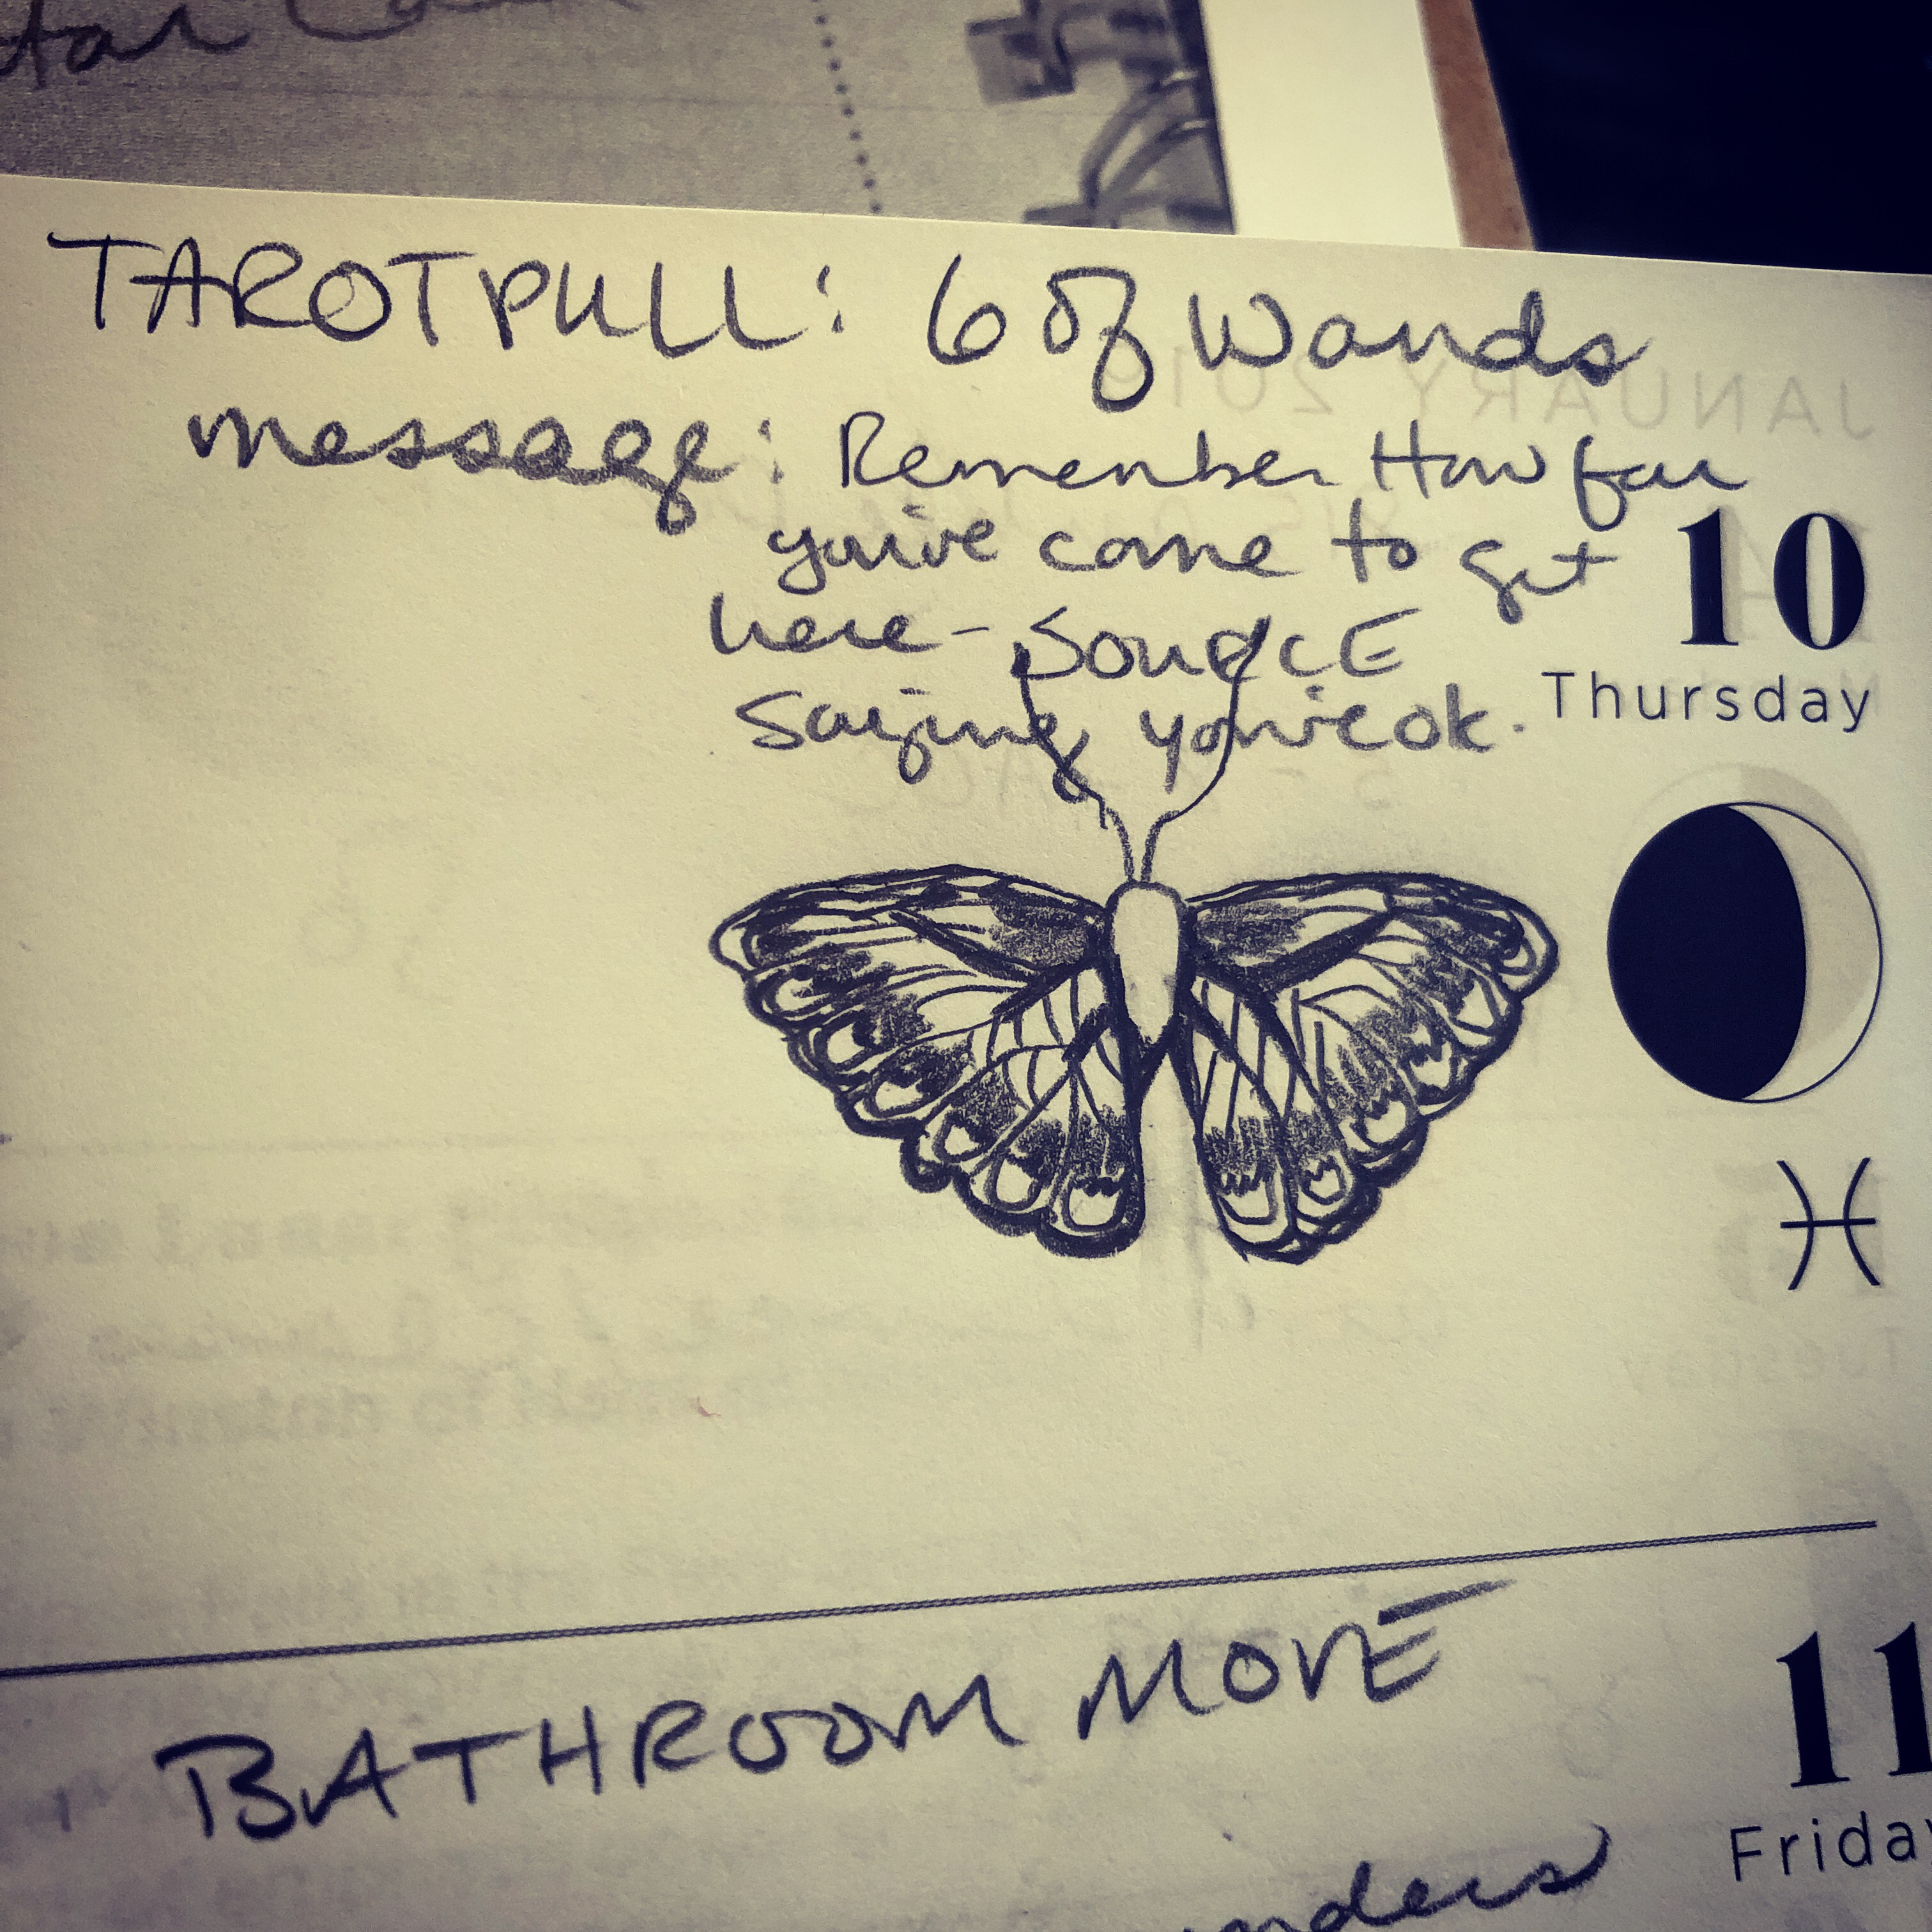 TAROT PULL: 6 of Wands
message: Remember How far
you've come to get
here - SOURCE
saying you're ok.
10
Thursday
JANUARY 2019
BATHROOM MOVE
11
Friday